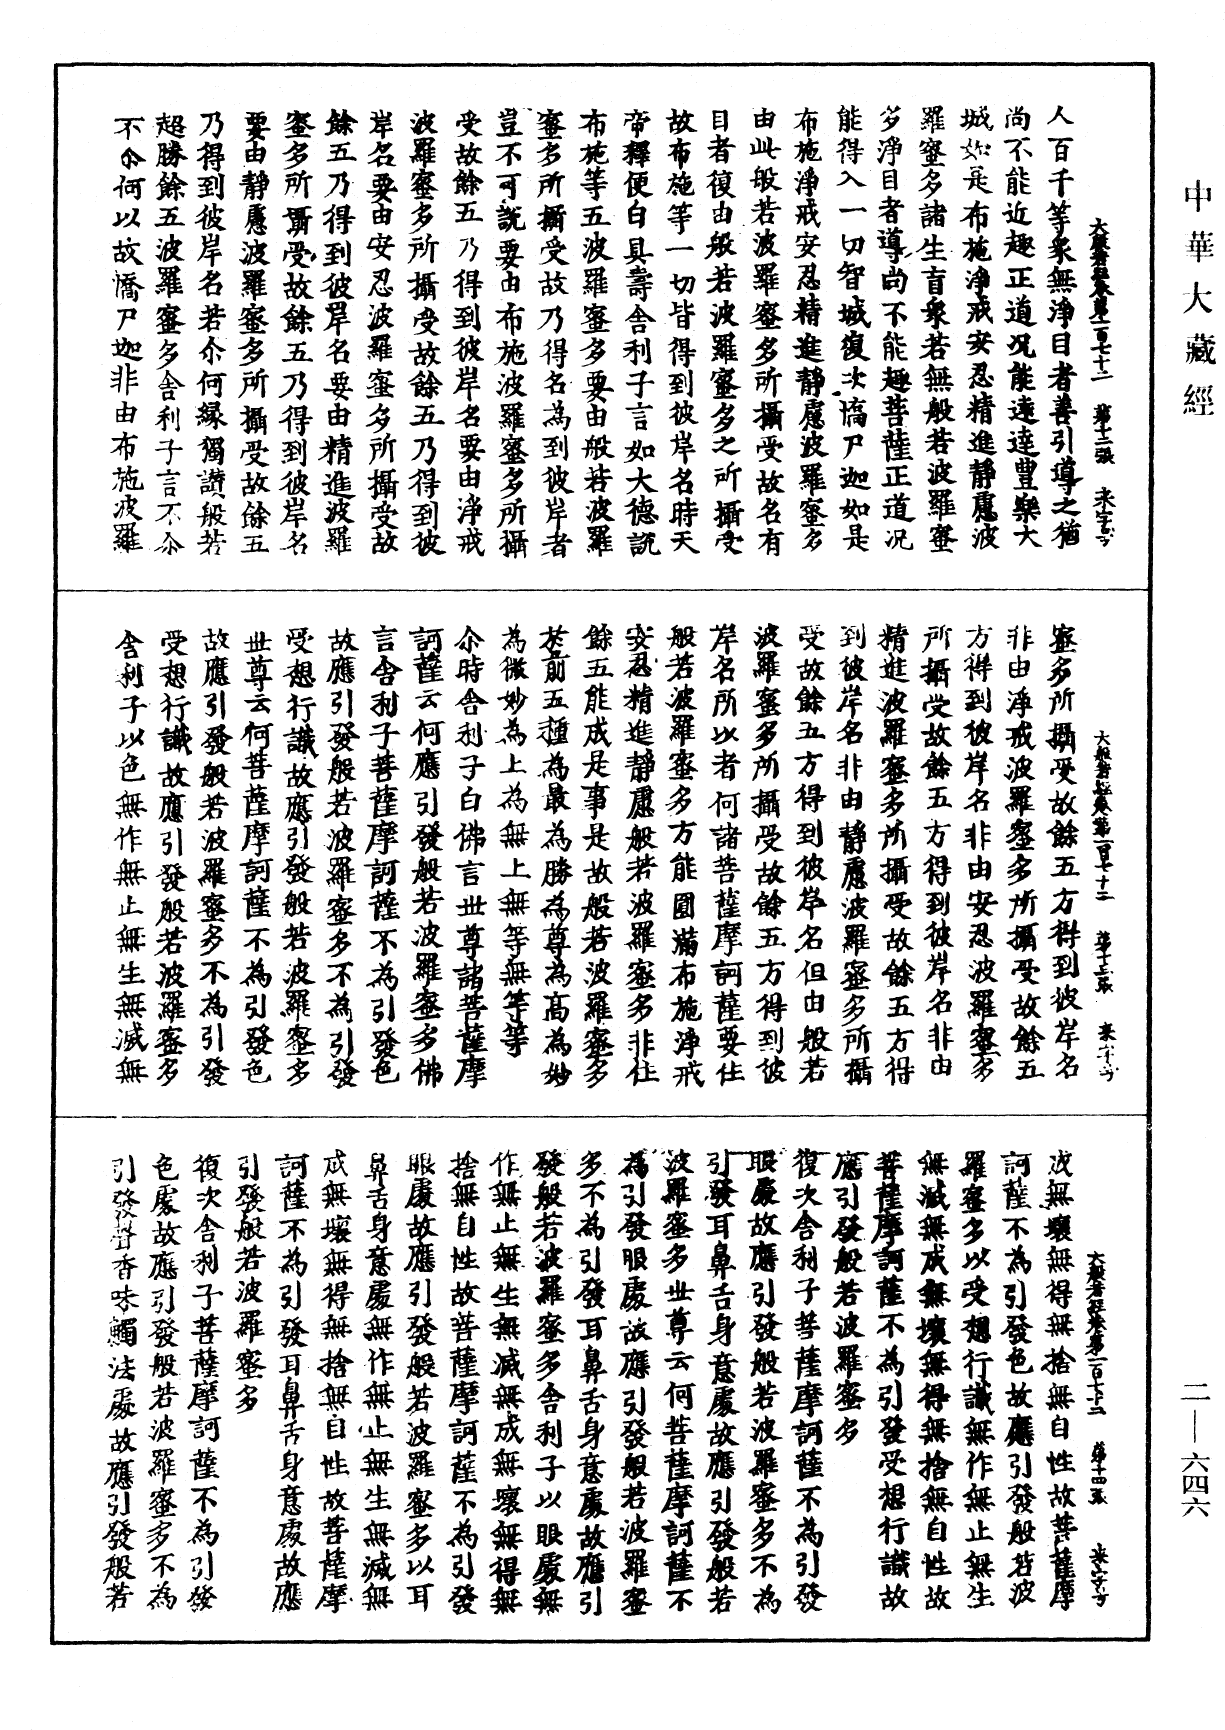 中華大藏經
大般若經卷第一百七十二 第十二張 来字号
人百千等衆無淨目者善引導之猶
尚不能近趣正道况能遠達豐樂大
城如是布施淨戒安忍精進靜慮波
羅蜜多諸生盲衆若無般若波羅蜜
多淨目者導尚不能趣菩薩正道况
能得入一切智城復次憍尸迦如是
布施淨戒安忍精進靜慮波羅蜜多
由此般若波羅蜜多所攝受故名有
目者復由般若波羅蜜多之所攝受
故布施等一切皆得到彼岸名時天
帝釋便白具壽舎利子言如大德説
布施等五波羅蜜多要由般若波羅
蜜多所攝受故乃得名為到彼岸者
豈不可説要由布施波羅蜜多所攝
受故餘五乃得到彼岸名要由淨戒
波羅蜜多所攝受故餘五乃得到彼
岸名要由安忍波羅蜜多所攝受故
餘五乃得到彼岸名要由精進波羅
蜜多所攝受故餘五乃得到彼岸名
要由靜慮波羅蜜多所攝受故餘五
乃得到彼岸名若尒何縁獨讃般若
超勝餘五波羅蜜多舎利子言不尒
不尒何以故憍尸迦非由布施波羅
大般若經卷第一百七十二 第十三張 来字号
蜜多所攝受故餘五方得到彼岸名
非由淨戒波羅蜜多所攝受故餘五
方得到彼岸名非由安忍波羅蜜多
所攝受故餘五方得到彼岸名非由
精進波羅蜜多所攝受故餘五方得
到彼岸名非由靜慮波羅蜜多所攝
受故餘五方得到彼岸名但由般若
波羅蜜多所攝受故餘五方得到彼
岸名所以者何諸菩薩摩訶薩要住
般若波羅蜜多方能圓滿布施淨戒
安忍精進靜慮般若波羅蜜多非住
餘五能成是事是故般若波羅蜜多
於前五種為最為勝為尊為高為妙
為微妙為上為無上無等無等等
尒時舎利子白佛言世尊諸菩薩摩
訶薩云何應引發般若波羅蜜多佛
言舎利子菩薩摩訶薩不為引發色
故應引發般若波羅蜜多不為引發
受想行識故應引發般若波羅蜜多
世尊云何菩薩摩訶薩不為引發色
故應引發般若波羅蜜多不為引發
受想行識故應引發般若波羅蜜多
舎利子以色無作無止無生無滅無
大般若經卷第一百七十二 第十四張 来字号
成無壞無得無捨無自性故菩薩摩
訶薩不為引發色故應引發般若波
羅蜜多以受想行識無作無止無生
無滅無成無壞無得無捨無自性故
菩薩摩訶薩不為引發受想行識故
應引發般若波羅蜜多
復次舎利子菩薩摩訶薩不為引發
眼處故應引發般若波羅蜜多不為
引發耳鼻舌身意處故應引發般若
波羅蜜多世尊云何菩薩摩訶薩不
為引發眼處故應引發般若波羅蜜
多不為引發耳鼻舌身意處故應引
發般若波羅蜜多舎利子以眼處無
作無止無生無滅無成無壞無得無
捨無自性故菩薩摩訶薩不為引發
眼處故應引發般若波羅蜜多以耳
鼻舌身意處無作無止無生無滅無
成無壞無得無捨無自性故菩薩摩
訶薩不為引發耳鼻舌身意處故應
引發般若波羅蜜多
復次舎利子菩薩摩訶薩不為引發
色處故應引發般若波羅蜜多不為
引發聲香味觸法處故應引發般若
二—六四六